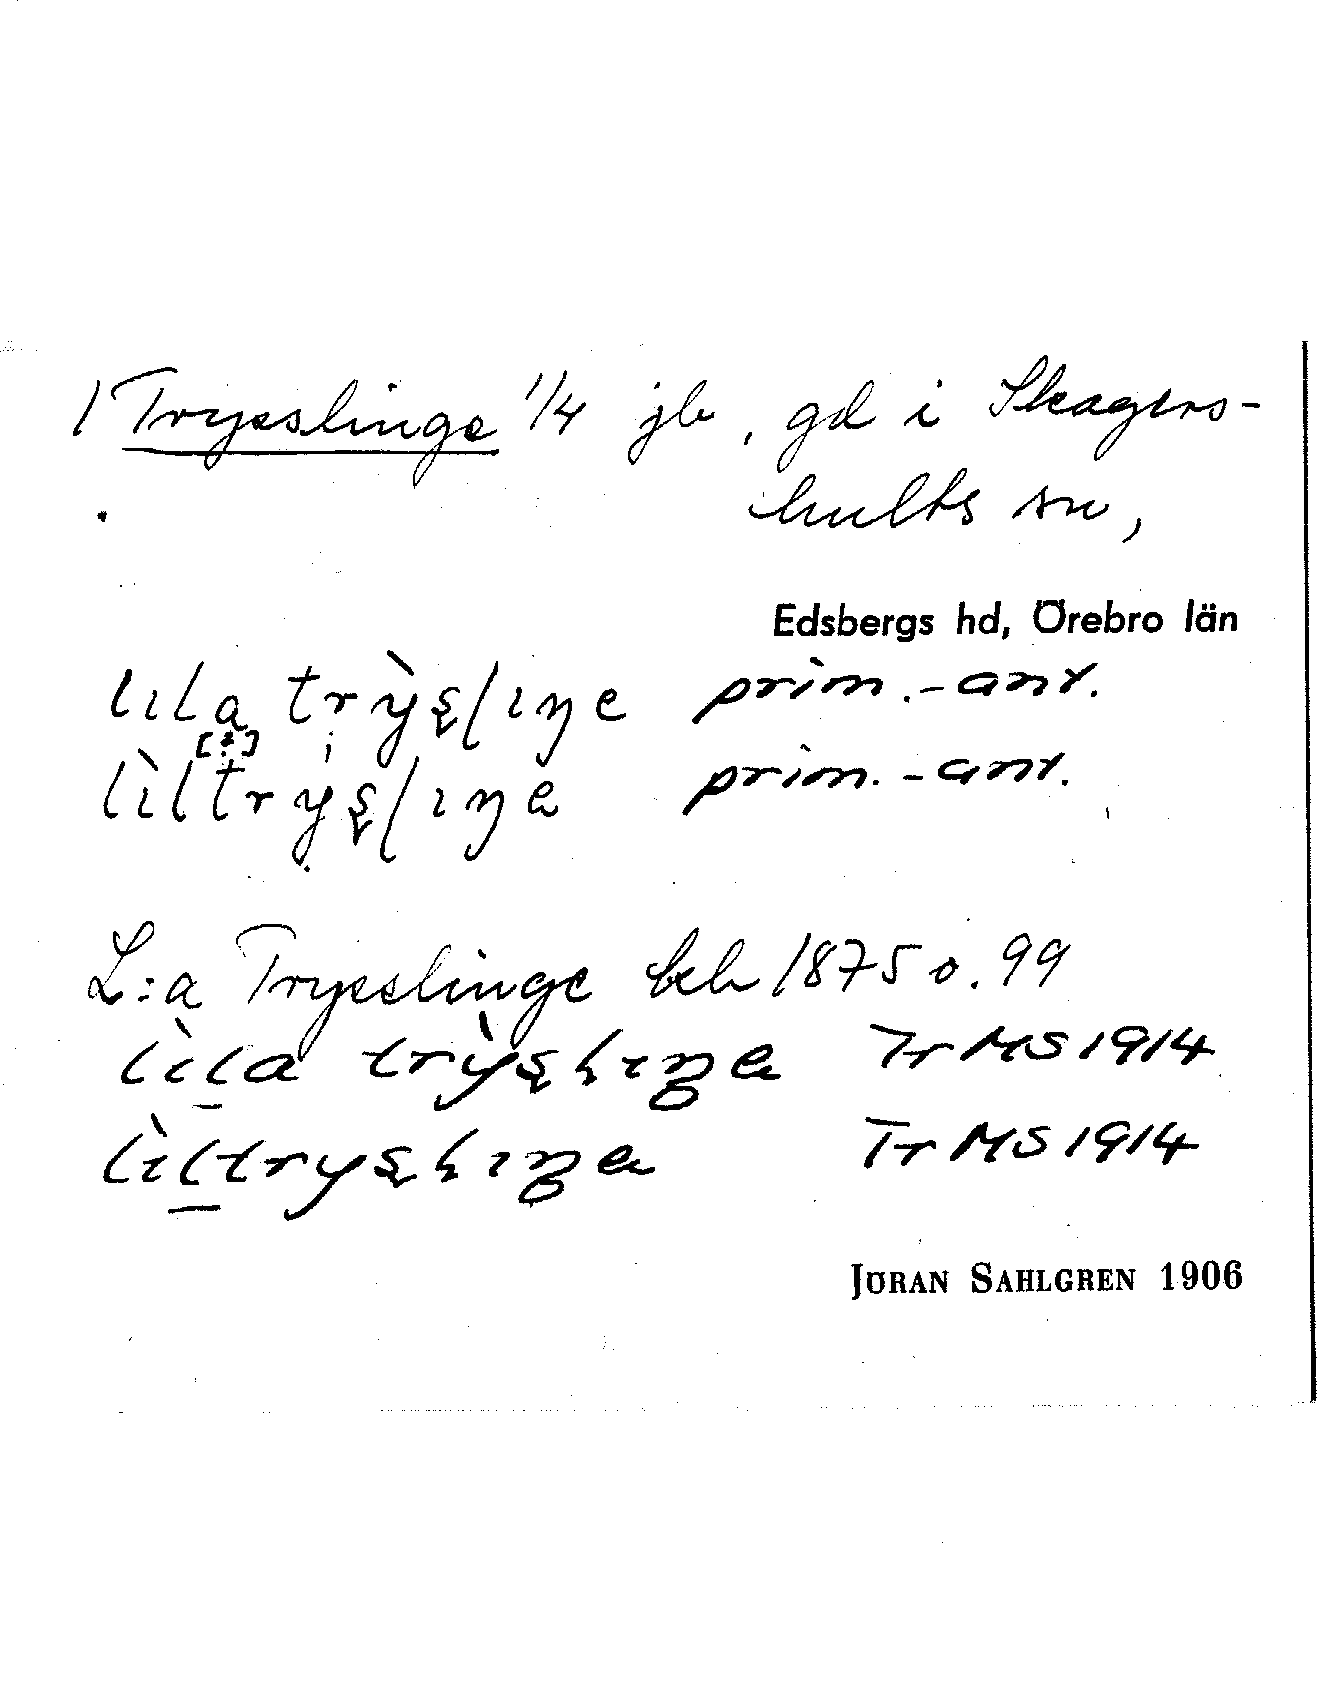 1 Trysslinge 1/4 jb, gd i Skagers-
hults sn,
Edsbergs hd, Örebro län
lıla trỳslıŋe prim.-ant.
[?]
lìltrysʃlıŋe prim.-ant.
L:a Trysslinge beb 1875 o. 99
lìla trỳslıŋe Tr MS 1914
lìltryslıŋe Tr MS 1914
JÖRAN SAHLGREN 1906